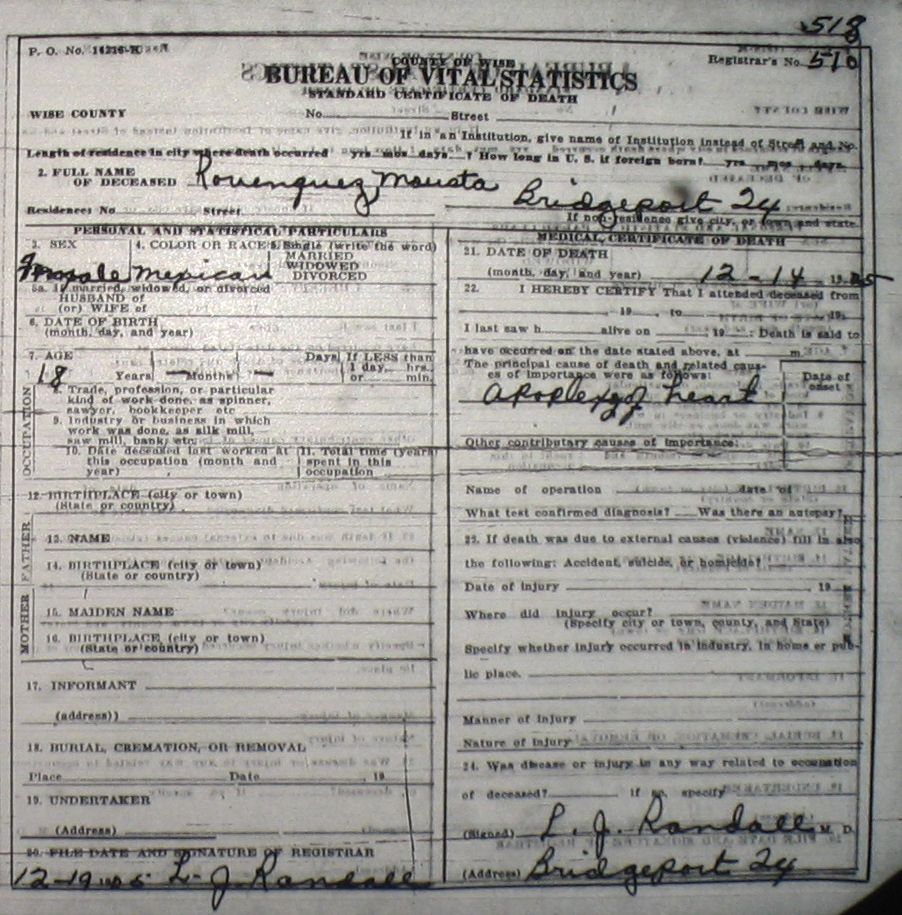 518
P. O. No. 14236-K
COUNTY OF WISE
Registrar's No. 510
BUREAU OF VITAL STATISTICS
STANDARD CERTIFICATE OF DEATH
WISE COUNTY No. Street
If in an Institution, give name of Institution instead of Street and No.
Length of residence in city where death occurred yrs. mos. days. ? How long in U. S. if foreign born? yrs. mos. days.
2. FULL NAME
OF DECEASED Rouenquez Mousta Bridgeport
Residence: No. Street
If non-residence give city, or town and state.
PERSONAL AND STATISTICAL PARTICULARS
3. SEX 4. COLOR OR RACE 5. Single (write the word)
MARRIED
WIDOWED
DIVORCED
Female Mexican
5a. If married, widowed, or divorced
HUSBAND of
(or) WIFE of
6. DATE OF BIRTH
(month, day, and year)
7. AGE Days If LESS than
1 day, hrs.
18 Years — Months — or min.
OCCUPATION
8. Trade, profession, or particular
kind of work done, as spinner,
sawyer, bookkeeper etc
9. Industry or business in which
work was done, as silk mill,
saw mill, bank, etc.
10. Date deceased last worked at
this occupation (month and
year)
11. Total time (years)
spent in this
occupation
12. BIRTHPLACE (city or town)
(State or country)
FATHER
13. NAME
14. BIRTHPLACE (city or town)
(State or country)
MOTHER
15. MAIDEN NAME
16. BIRTHPLACE (city or town)
(State or country)
17. INFORMANT
(address))
18. BURIAL, CREMATION, OR REMOVAL
Place Date , 19
19. UNDERTAKER
(Address)
20. FILE DATE AND SIGNATURE OF REGISTRAR
12-19 L. J. Randall
MEDICAL CERTIFICATE OF DEATH
21. DATE OF DEATH
(month, day, and year) 12-14 19
22. I HEREBY CERTIFY That I attended deceased from
, 19 , to , 19
I last saw h alive on , 19 : Death is said to
have occurred on the date stated above, at m.
The principal cause of death and related caus-
es of importance were as follows:
Date of
onset
apoplexy of heart
Other contributory causes of importance:
Name of operation date of
What test confirmed diagnosis? Was there an autopsy?
23. If death was due to external causes (violence) fill in also
the following: Accident, suicide, or homicide?
Date of injury , 19
Where did injury occur?
(Specify city or town, county, and State)
Specify whether injury occurred in industry, in home or pub-
lic place.
Manner of injury
Nature of injury
24. Was disease or injury in any way related to occupation
of deceased? If so, specify
(Signed) L. J. Randall M. D.
(Address) Bridgeport